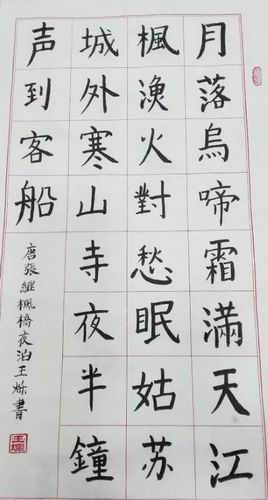 月落烏啼霜滿天江
楓漁火對愁眠姑苏
城外寒山寺夜半鐘
声到客船
唐張繼楓橋夜泊王烁書